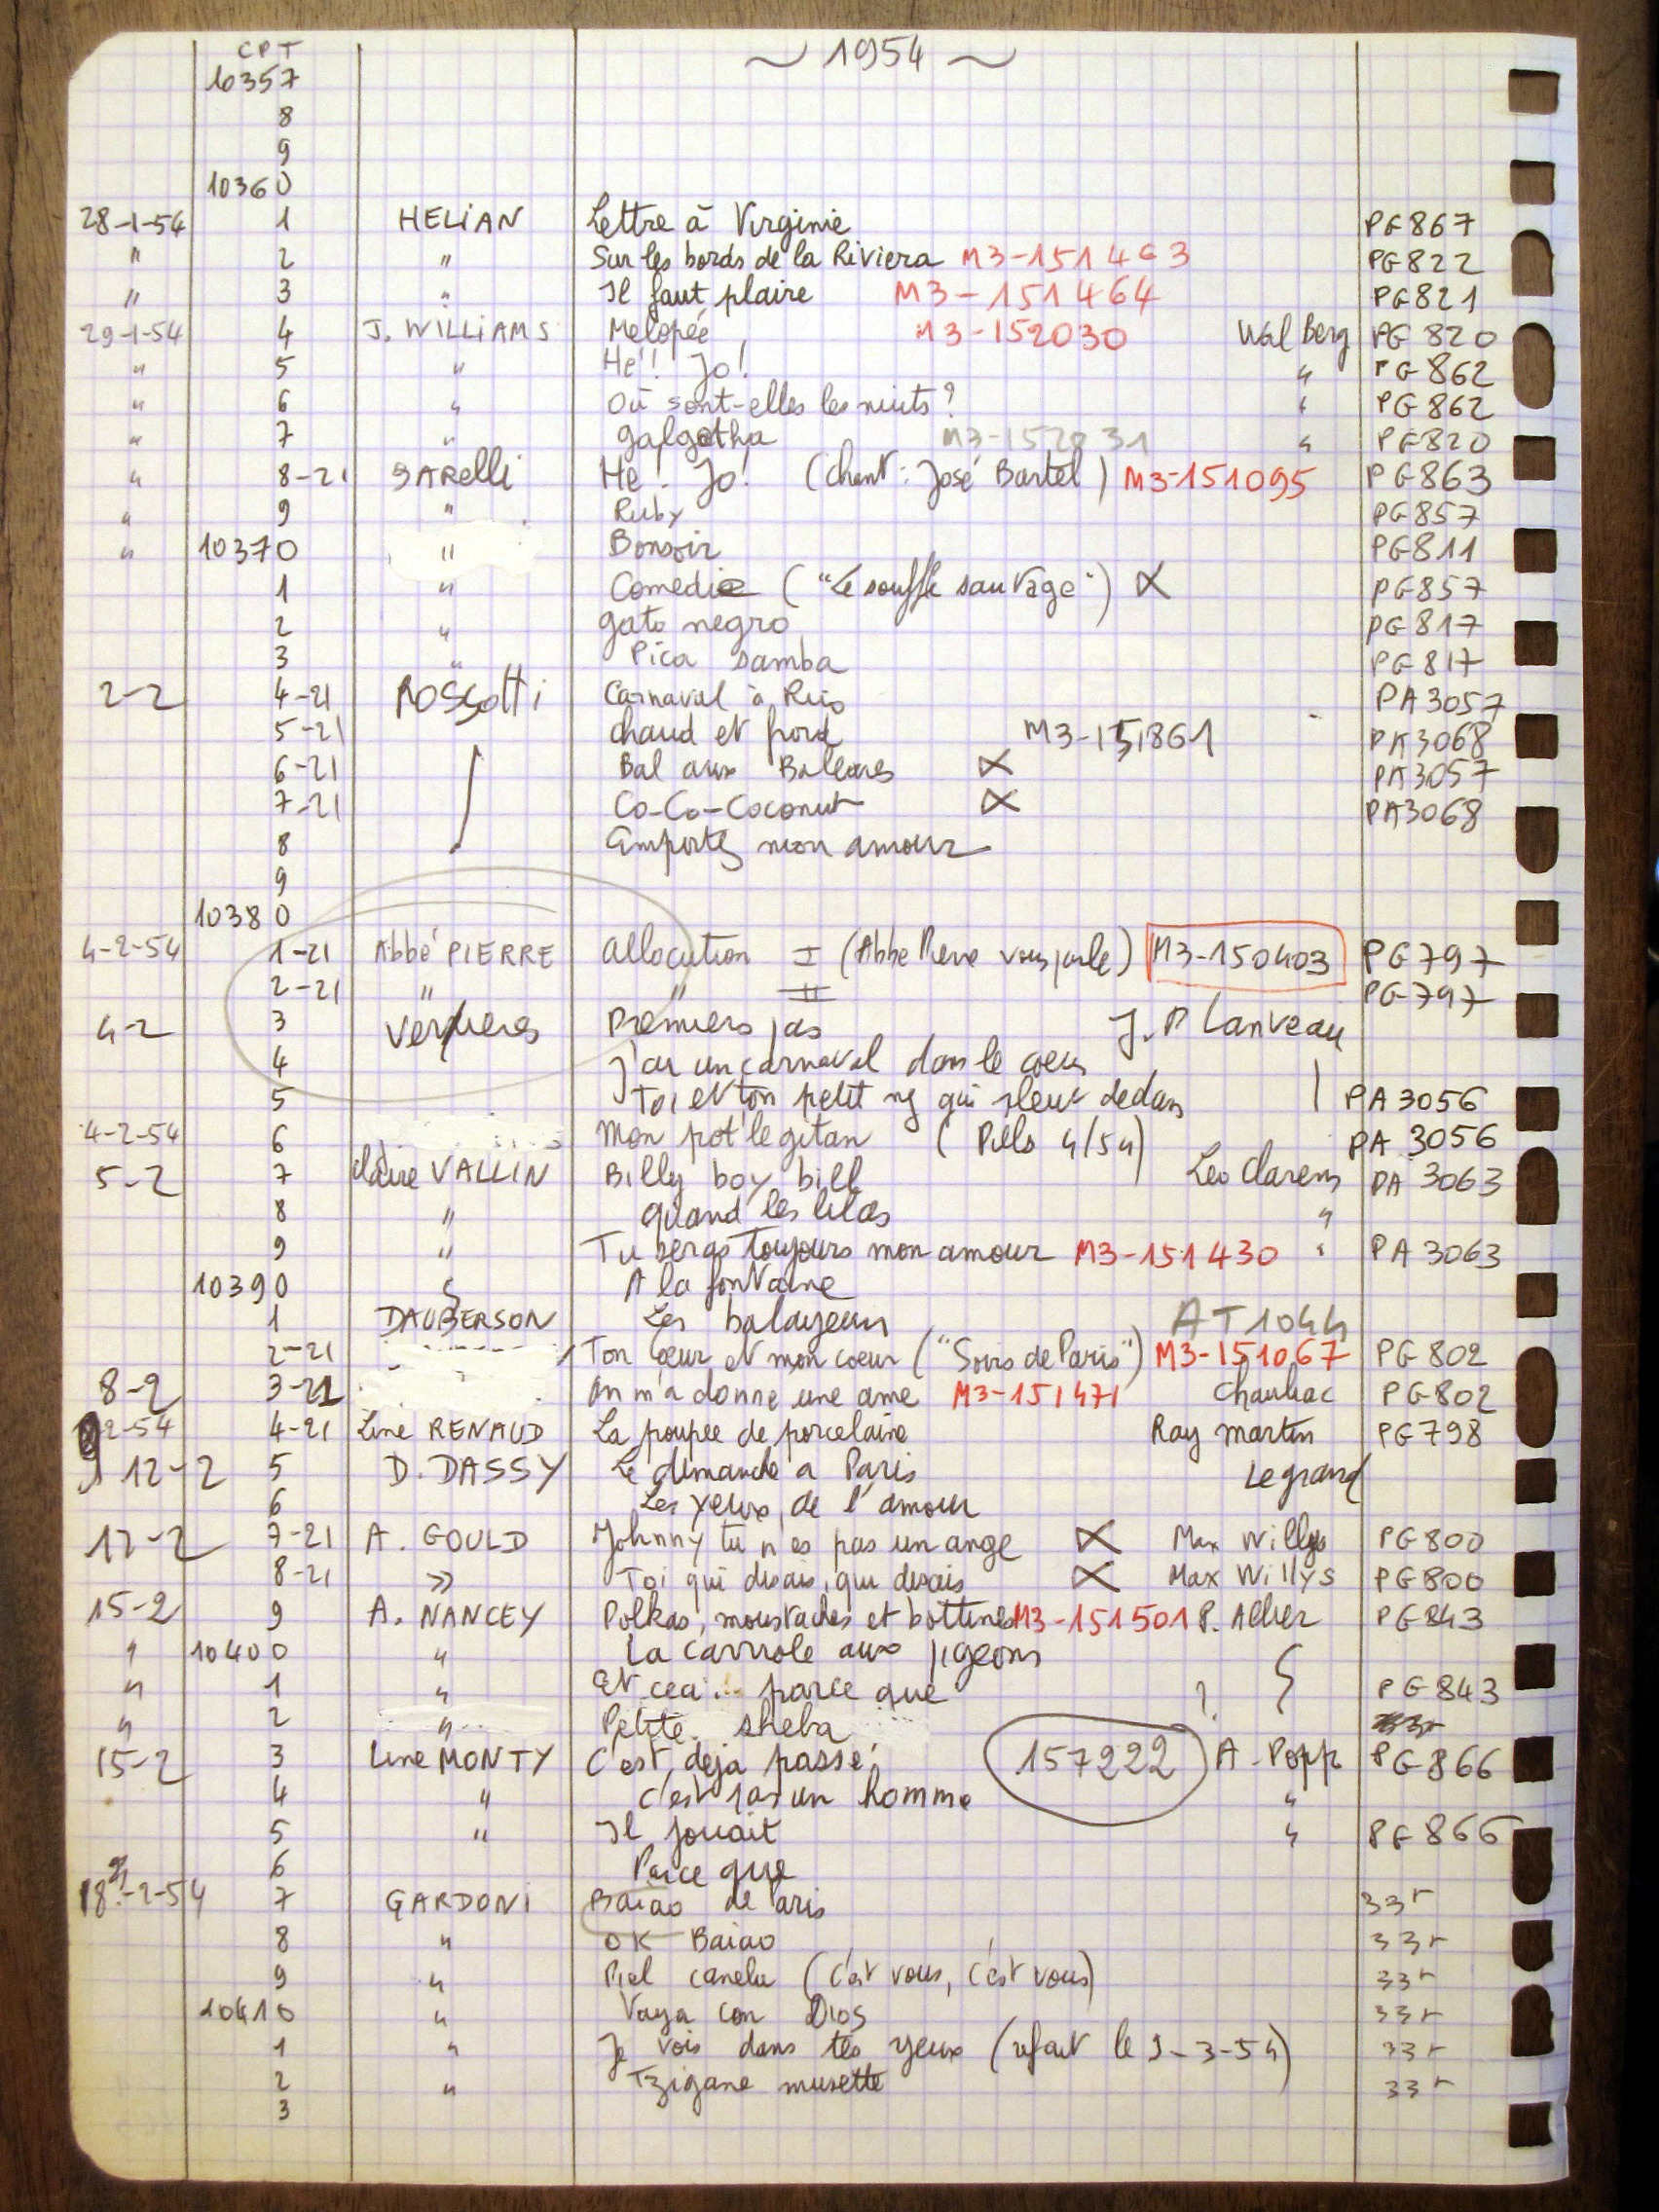 CPT ~ 1954 ~
10357
8
9
10360
28-1-54 1 HELIAN Lettre à Virginie PG867
" 2 " Sur les bords de la Riviera M3-151463 PG822
" 3 " Il faut plaire M3-151464 PG821
29-1-54 4 J. WILLIAMS Melopée M3-152030 Wal Berg PG820
" 5 " Hé! Jo! " PG862
" 6 " Où sont-elles les nuits? " PG862
" 7 " M3-152031 " PG820
" 8-21 BARelli He! Jo! (chant: José Bartel) M3-151095 PG863
" 9 " Ruby PG857
" 10370 " Bonsoir PG811
1 " ("Le souffle sauvage") PG857
2 " Gato negro PG817
3 " Pica samba PG817
2-2 4-21 ROSSotti Carnaval à Rio PA3057
5-21 chaud et froid M3-151861 PA3068
6-21 Bal aux Baleares PA3057
7-21 Co-Co-Coconut PA3068
8 Emportes mon amour
9
10380
4-2-54 1-21 Abbé PIERRE Allocution I (Abbe Pierre vous parle) M3-150403 PG797
2-21 " " II PG797
4-2 3 Verlieres Premiers pas J.P Lanveau
4 J'ai un carnaval dans le coeur
5 Toi et ton petit qui pleut dedans PA3056
4-2-54 6 Mon pot' le gitan (Pills 4/54) PA 3056
5-2 7 Claire VALLIN Billy boy bill Leo Clarens PA 3063
8 " quand les lilas "
9 " Tu seras toujours mon amour M3-151430 " PA 3063
10390 " A la fontaine
1 DAUBERSON Les balayeurs AT1044
2-21 Ton coeur et mon coeur ("Soirs de Paris") M3-151067 PG802
8-2 3-21 On m'a donne une ame M3-151471 Chauliac PG802
2-54 4-21 Line RENAUD La poupee de porcelaine Ray martin PG798
12-2 5 D. DASSY Le dimanche a Paris Legrand
6 Les yeux de l'amour
12-2 7-21 A. GOULD Johnny tu n'es pas un ange Max Willys PG800
8-21 » Toi qui disais, qui disais Max Willys PG800
15-2 9 A. NANCEY Polkas, moustaches et bottines M3-151501 P. Allier PG843
" 10400 " La carriole aux pigeons
" 1 " Et cea... parce que ? PG843
" 2 " Petite sheba
15-2 3 Line MONTY C'est deja passé 157222 A. Popp PG866
4 " c'est pas un homme "
5 " Il jouait " PG866
6 Parce que
18-2-54 7 GARDONI Baiao de Paris 33r
8 " OK Baiao 33r
9 " Piel canela (c'est vous, c'est vous) 33r
10410 " Vaya con Dios 33r
1 " Je vois dans tes yeux (refait le 9-3-54) 33r
2 " Tzigane musette 33r
3